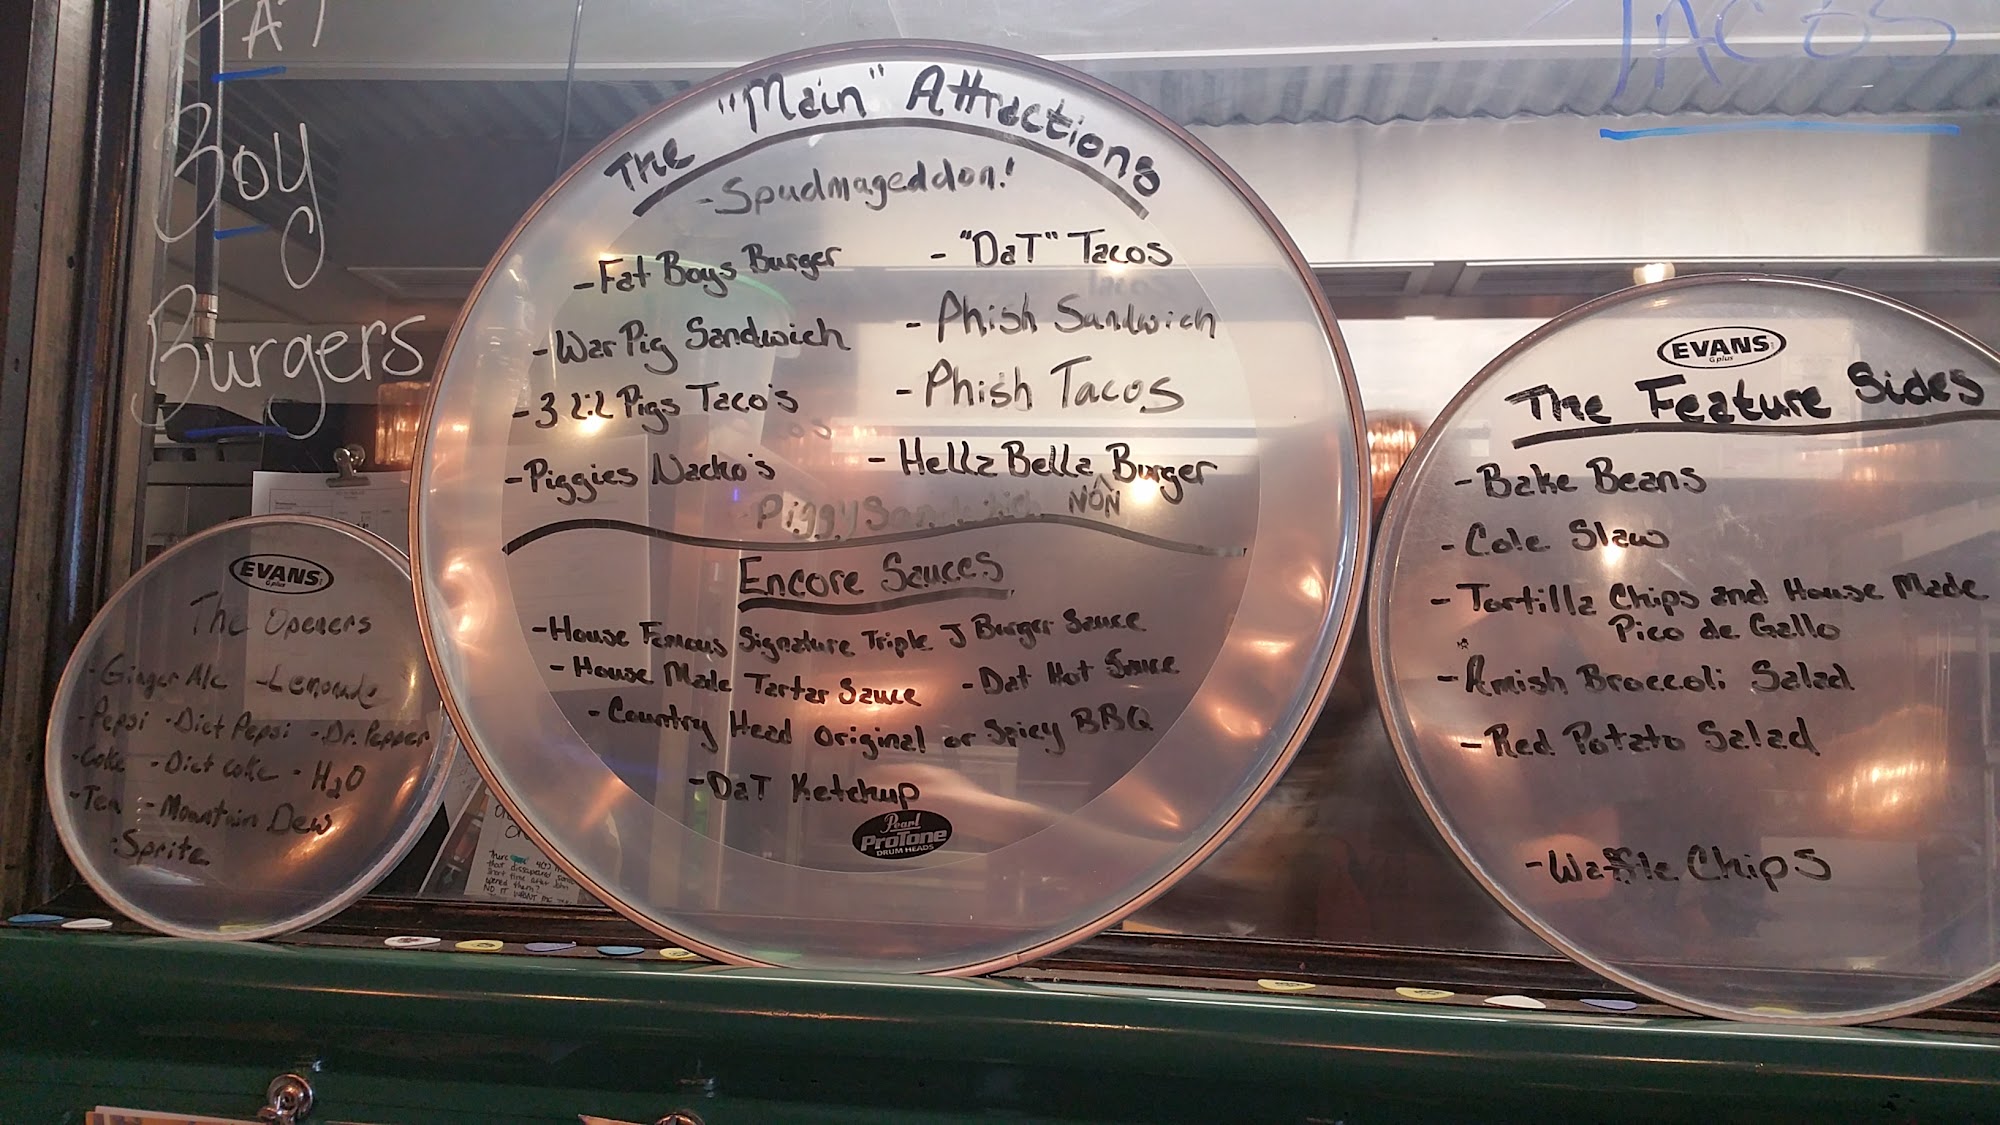 FAT
Boy
Burgers
TACOS
The "Main" Attractions
- Spudmageddon!
- Fat Boys Burger
- War Pig Sandwich
- 3 Lil Pigs Taco's
- Piggies Nacho's
- "DaT" Tacos
- Phish Sandwich
- Phish Tacos
- Hella Bella Burger
NON
Piggy Sandwich
Encore Sauces
- House Famous Signature Triple J Burger Sauce
- House Made Tartar Sauce - Dat Hot Sauce
- Country Head Original or Spicy BBQ
- DaT Ketchup
Pearl
ProTone
DRUM HEADS
EVANS
G plus
The Openers
- Ginger Ale - Lemonade
- Pepsi - Diet Pepsi - Dr. Pepper
- Coke - Diet Coke - H2O
- Tea - Mountain Dew
- Sprite
EVANS
G plus
The Feature Sides
- Bake Beans
- Cole Slaw
- Tortilla Chips and House Made
Pico de Gallo
- Amish Broccoli Salad
- Red Potato Salad
- Waffle Chips